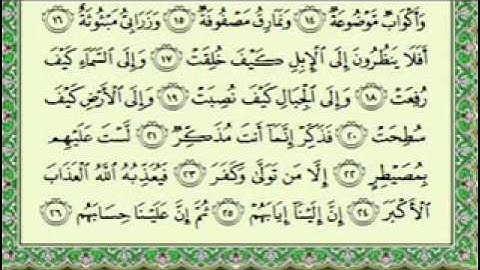 وَأَكْوَابٌ مَّوْضُوعَةٌ ١٤ وَنَمَارِقُ مَصْفُوفَةٌ ١٥ وَزَرَابِيُّ مَبْثُوثَةٌ ١٦
أَفَلَا يَنظُرُونَ إِلَى الْإِبِلِ كَيْفَ خُلِقَتْ ١٧ وَإِلَى السَّمَاءِ كَيْفَ
رُفِعَتْ ١٨ وَإِلَى الْجِبَالِ كَيْفَ نُصِبَتْ ١٩ وَإِلَى الْأَرْضِ كَيْفَ
سُطِحَتْ ٢٠ فَذَكِّرْ إِنَّمَا أَنتَ مُذَكِّرٌ ٢١ لَّسْتَ عَلَيْهِم
بِمُصَيْطِرٍ ٢٢ إِلَّا مَن تَوَلَّىٰ وَكَفَرَ ٢٣ فَيُعَذِّبُهُ اللَّهُ الْعَذَابَ
الْأَكْبَرَ ٢٤ إِنَّ إِلَيْنَا إِيَابَهُمْ ٢٥ ثُمَّ إِنَّ عَلَيْنَا حِسَابَهُم ٢٦